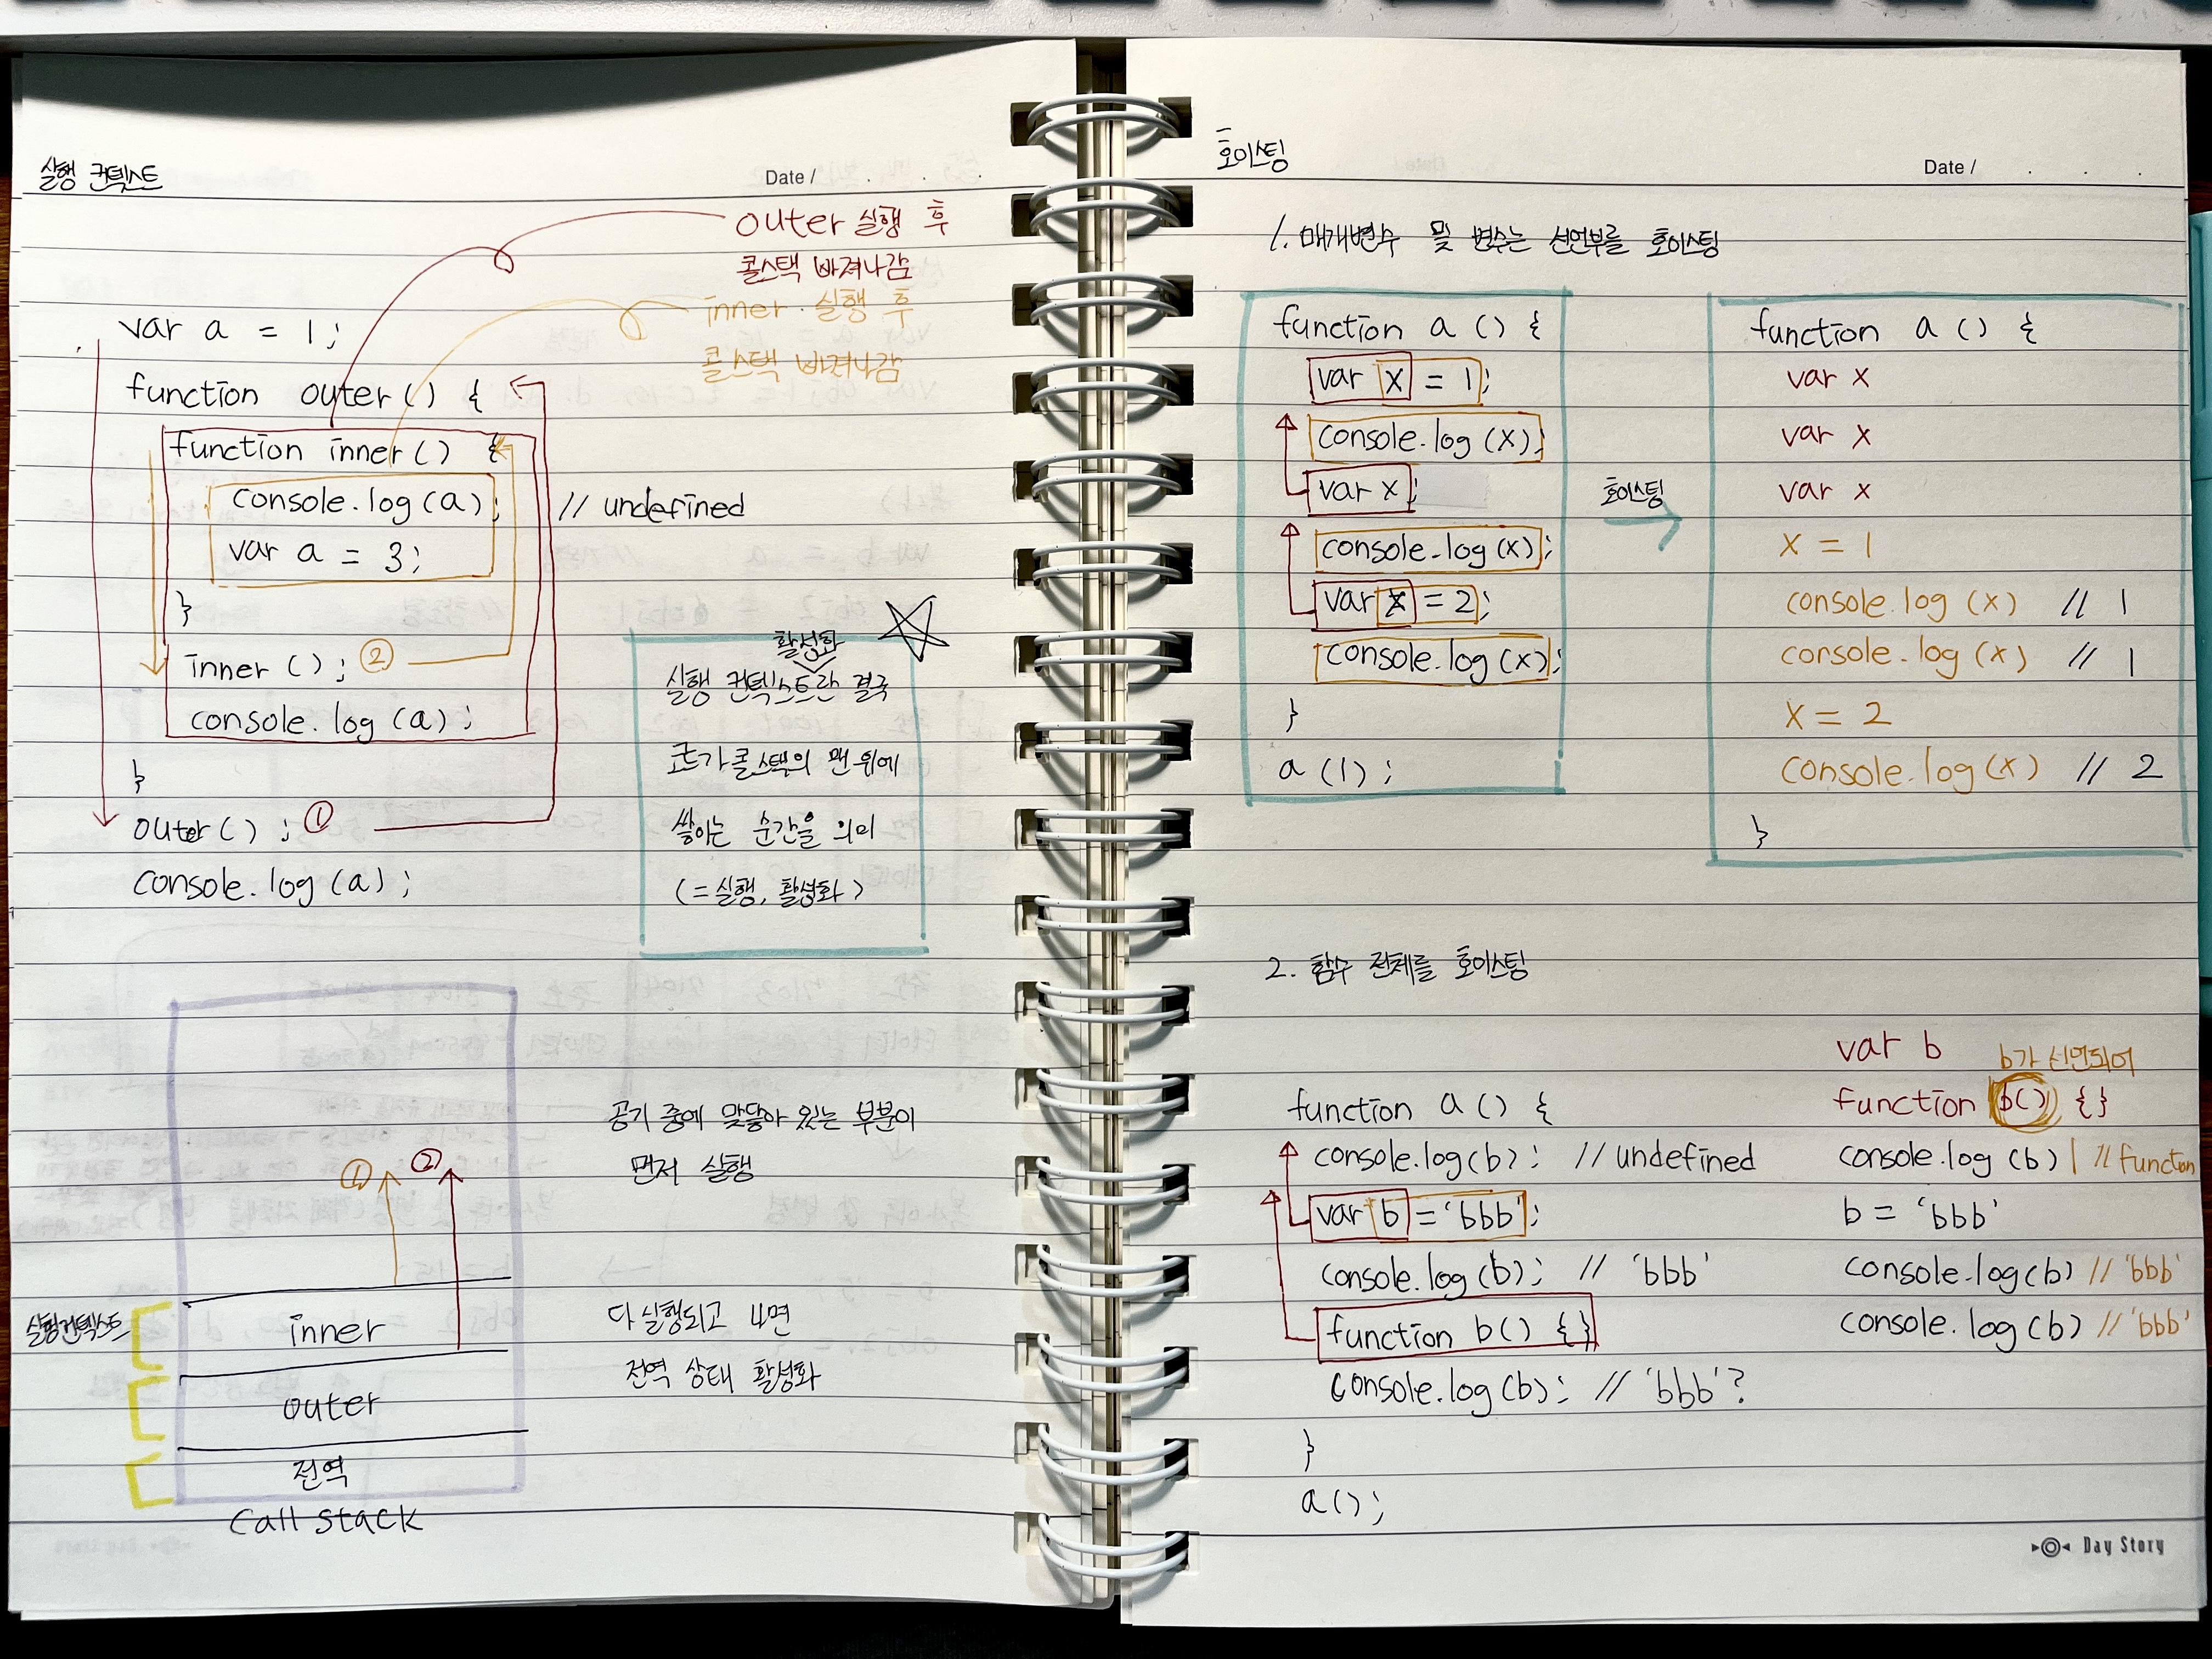 실행 컨텍스트
Date / . . .
outer 실행 후
콜스택 빠져나감
inner 실행 후
콜스택 빠져나감
var a = 1;
function outer() {
function inner() {
console.log(a); // undefined
var a = 3;
}
inner(); ②
console.log(a);
}
outer(); ①
console.log(a);
활성화
실행 컨텍스트란 결국
코드가 콜스택의 맨 위에
쌓이는 순간을 의미
(=실행, 활성화)
① ②
실행컨텍스트
inner
outer
전역
Call stack
공기 중에 맞닿아 있는 부분이
먼저 실행
다 실행되고 나면
전역 상태 활성화
호이스팅
Date / . . .
1. 매개변수 및 변수는 선언부를 호이스팅
function a () {
var x = 1;
console.log(x);
var x;
console.log(x);
var x = 2;
console.log(x);
}
a(1);
호이스팅
function a () {
var x
var x
var x
x = 1
console.log(x) // 1
console.log(x) // 1
x = 2
console.log(x) // 2
}
2. 함수 전체를 호이스팅
function a () {
console.log(b); // undefined
var b = 'bbb';
console.log(b); // 'bbb'
function b() {}
console.log(b); // 'bbb'?
}
a();
var b
b가 선언되어
function b() {}
console.log(b) // function
b = 'bbb'
console.log(b) // 'bbb'
console.log(b) // 'bbb'
Day Story